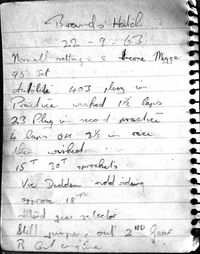 Brands Hatch
22-9-63
Normal settings
95 Jet
403 plug in
Practice washed 1½ laps
23 Plug in second practice
4 laps OK 3½ in race
then washed
15T 30T sprockets
Vic Dedden riding
approx 18TH
gear selector
Still jumps out 2ND Gear